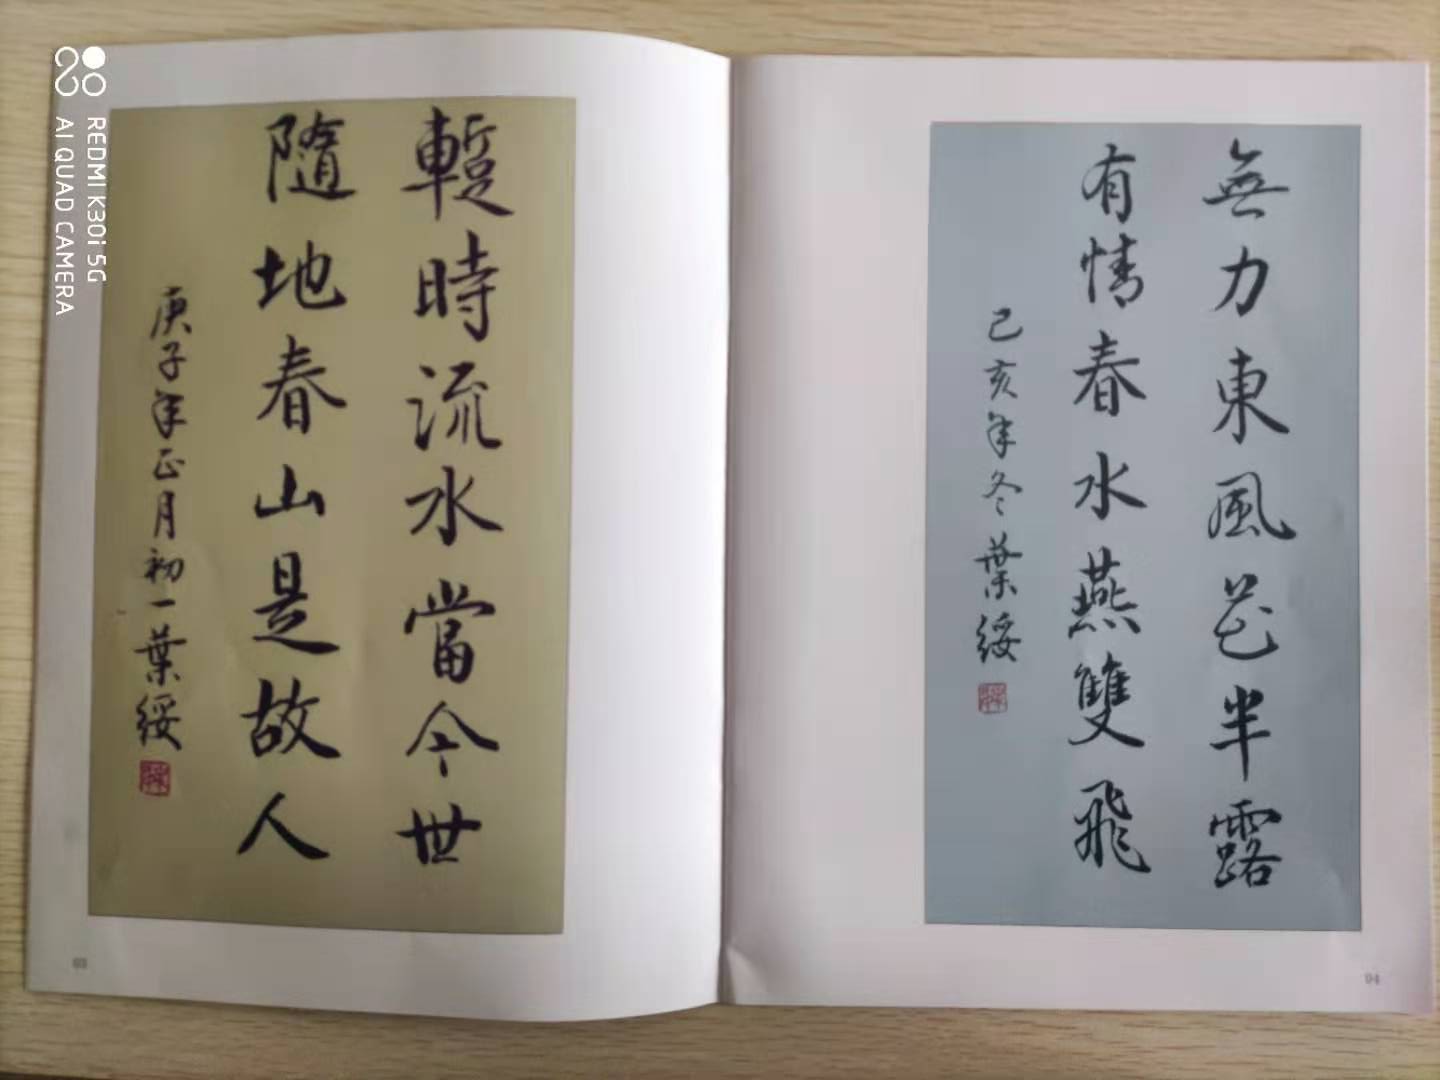 暫時流水當今世
隨地春山是故人
庚子年正月初一葉綏
無力東風花半露
有情春水燕雙飛
己亥年冬葉綏
94
REDMI K30i 5G
AI QUAD CAMERA